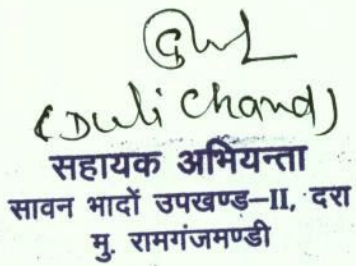 (Duli Chand)
सहायक अभियन्ता
सावन भादों उपखण्ड–II, दरा
मु. रामगंजमण्डी